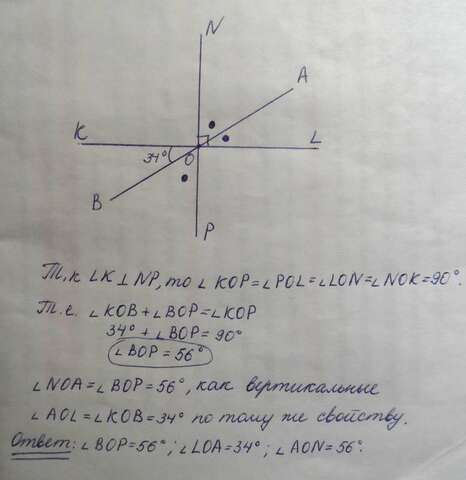 N
A
K
L
34°
O
B
P
Т.к. LK ⊥ NP, то ∠KOP = ∠POL = ∠LON = ∠NOK = 90°.
Т.е. ∠KOB + ∠BOP = ∠KOP
34° + ∠BOP = 90°
∠BOP = 56°
∠NOA = ∠BOP = 56°, как вертикальные
∠AOL = ∠KOB = 34° по тому же свойству.
Ответ: ∠BOP = 56°; ∠LOA = 34°; ∠AON = 56°.